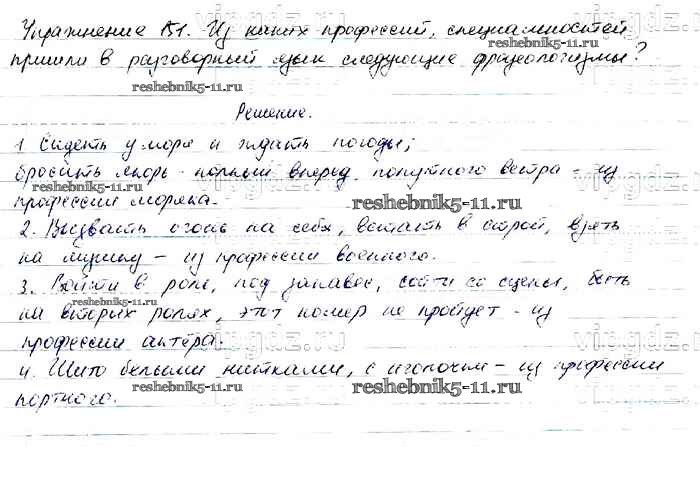 Упражнение 151. Из каких профессий, специальностей
пришли в разговорный язык следующие фразеологизмы?
Решение.
1 Сидеть у моря и ждать погоды;
бросить якорь - полный вперед, попутного ветра - из
профессии моряка.
2. Вызвать огонь на себя, встать в строй, взять
на мушку - из профессии военного.
3. Войти в роль, под занавес, сойти со сцены, быть
на вторых ролях, этот номер не пройдет - из
профессии актёра.
4. Шито белыми нитками, с иголочки - из профессии
портного.
vipgdz.ru
reshebnik5-11.ru